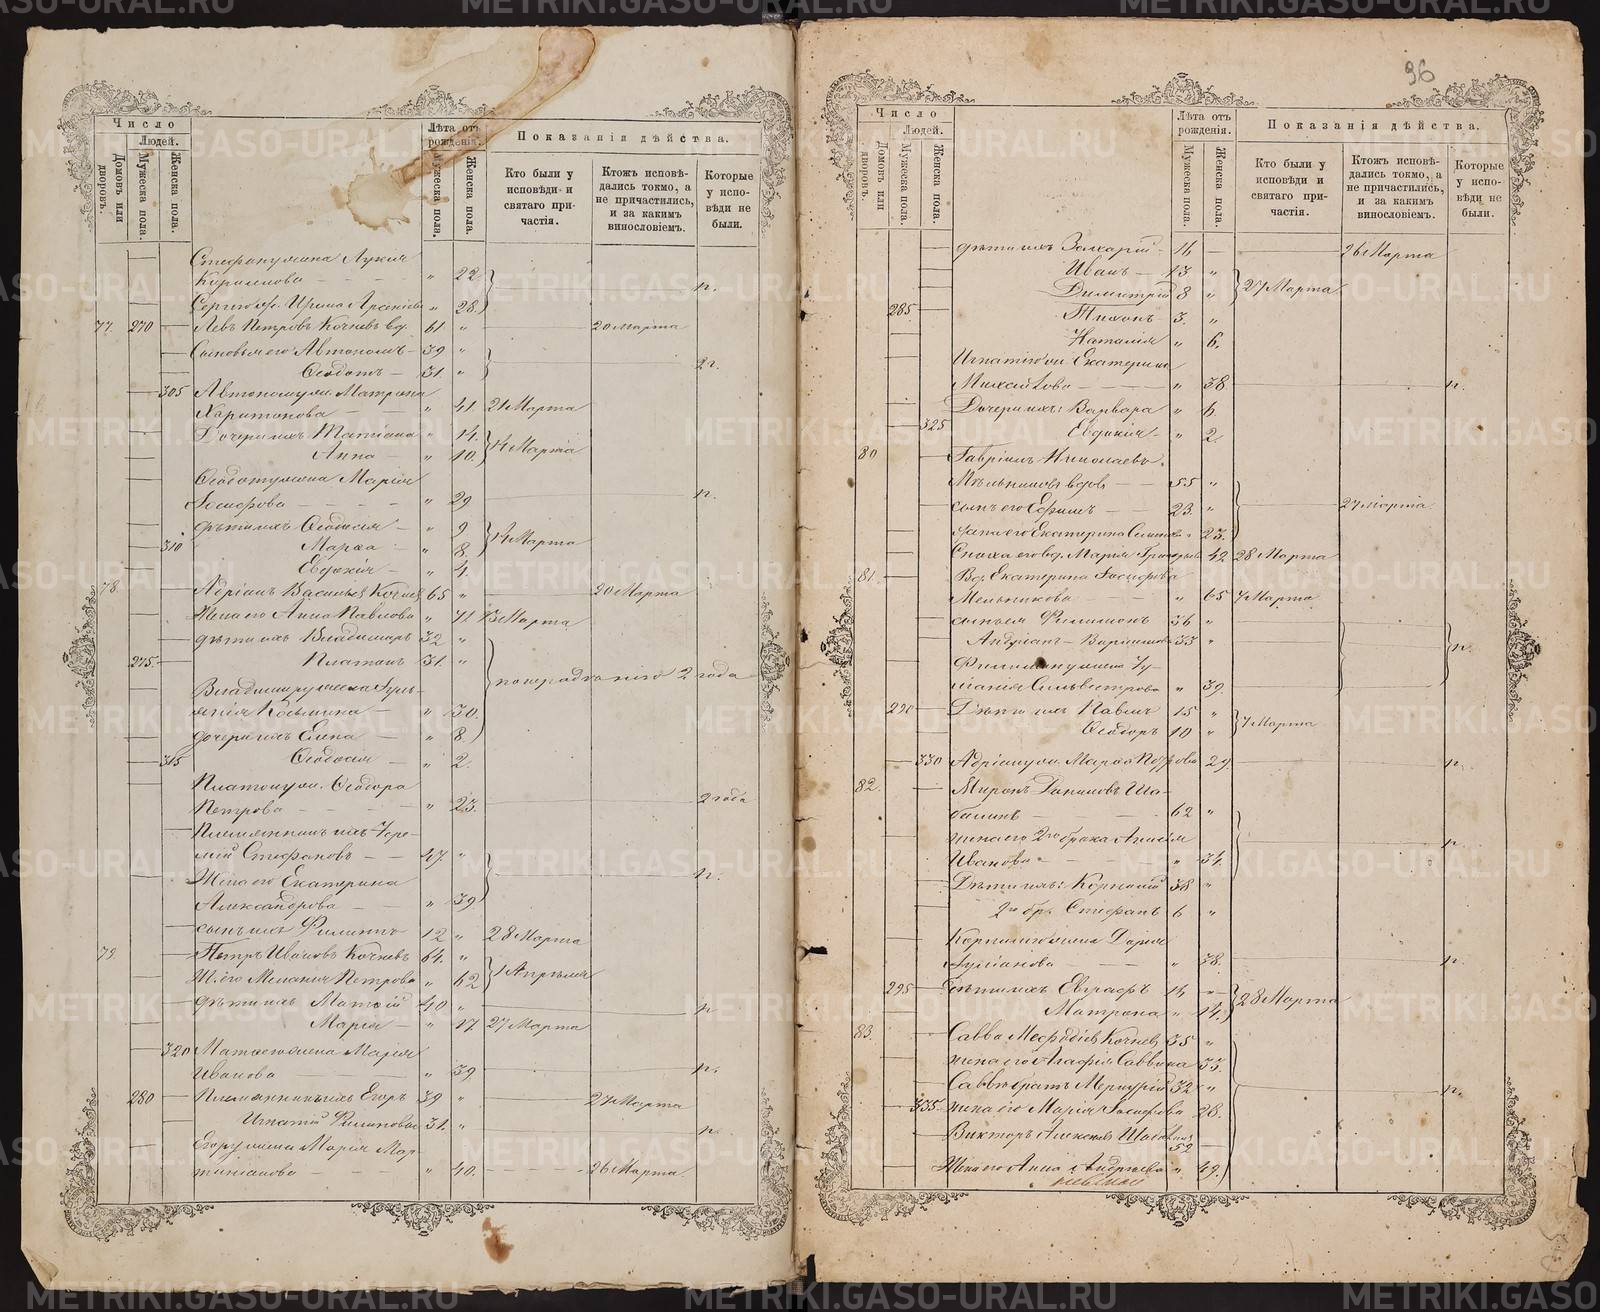 Число
Людей.
Домовъ или дворовъ.
Мужеска пола.
Женска пола.
Лѣта отъ рожденія.
Мужеска пола.
Женска пола.
Показанія дѣйства.
Кто были у исповѣди и святаго причастія.
Ктожъ исповѣдались токмо, а не причастились, и за какимъ винословіемъ.
Которые у исповѣди не были.
Стефану жена Лукия
Кирилова — — " 22
Ирина " 28.
77. 270 — Левъ Петровъ Кочневъ вд. 61 " 20 марта
Сыновья его Автономъ — 39 "
Ѳедотъ — 31. " 2 г.
305 Автоному ж. Матрона
Харитонова — — " 41 21 Марта
Дочери ихъ Татіана " 14.
Анна — " 10. 14 Марта
Ѳедоту жена Марія
Іосифова — — " 29 н.
дѣти ихъ Ѳеодосія — " 9
310 Марѳа — " 8. 14 Марта
Евдокія — " 4.
78. Адріанъ Васильевъ Кочнев 65 " 20 Марта
Жена его Анна Павлова " 71 13 Марта
дѣти ихъ Владимиръ 32 "
275 — Платонъ 31. "
по нерадѣнію 2 года
Владимиру жена
Козьмина — " 30.
дочери ихъ Елена — " 8.
315 Ѳеодосія — " 2.
Платону ж. Ѳедора
Петрова — " 23. 2 года
Племянникъ ихъ
Стефановъ — — 47. "
Жена его Екатерина
Александрова — " 39 н.
сынъ ихъ Филиппъ 12 " 28 Марта
79. Петръ Ивановъ Кочневъ 64. "
Ж. его Меланія Петрова " 62 1 Апрѣля
дѣти ихъ Матѳій 40 " н.
Марія — " 17. 27 Марта
320 Матѳею жена Марія
Иванова " 39. н.
280 — Племянникъ ихъ Егоръ 39 " 27 Марта
Игнатій Филиповы 31. " н.
Егору жена Марія Мар-
тиніанова — " 40. 26 Марта
96
Число
Людей.
Домовъ или дворовъ.
Мужеска пола.
Женска пола.
Лѣта отъ рожденія.
Мужеска пола.
Женска пола.
Показанія дѣйства.
Кто были у исповѣди и святаго причастія.
Ктожъ исповѣдались токмо, а не причастились, и за какимъ винословіемъ.
Которые у исповѣди не были.
дѣти ихъ Захарій — 16 — 26 Марта
Иванъ — 13 "
Димитрій 8 " 27 Марта
285 Тихонъ — 3. "
Наталія " 6.
Игнатію ж. Екатерина
Михайлова — — " 38 н.
Дочери ихъ: Варвара " 6.
325 Евдокія — " 2.
80 Гавріилъ Николаевъ
Мѣльниковъ вдов — 55 "
сынъ его Ефимъ — 23. " 27 марта.
жена его Екатерина " 23.
Сноха его вд. Марія Григорьева 42 28 Марта
81. Вд. Екатерина Іосифова
Мельникова — " 65 7 Марта
сыновья Филимонъ 36 "
33 " н.
Филимону жена
Сильвестрова " 39.
290 — Дѣти ихъ Павелъ 15 "
Ѳедоръ 10 " 7 Марта
330 Адріану ж. Марѳа Петрова 29. н.
82. Миронъ Даниловъ Ша-
балинъ — 62 "
жена его 2го брака
Иванова — " 34. н.
Дѣти ихъ: Корнилій 38 "
2го бр. Стефанъ 6 "
Корнилію жена Дарія
" 38. н.
295 дѣти ихъ Евграфъ 16 "
Матрона " 14. 28 Марта
83. Савва Меѳодіевъ Кочневъ 35 "
жена его Агафія Саввина 33.
Саввы братъ Меркурій 32 " н.
335. жена его Марія Іосифова 28.
Викторъ Алексѣевъ Шабалинъ
52
Жена его Анна Андреева " 49.